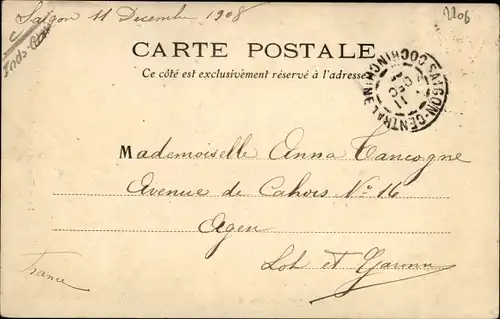 Saigon 11 Decembre 1908
2206
CARTE POSTALE
Ce côté est exclusivement réservé à l'adresse
SAIGON-CENTRAL
COCHINCHINE
11
DEC
Mademoiselle Anna Tancogne
Avenue de Cahors No 16
Agen
Lot et Garonne
France